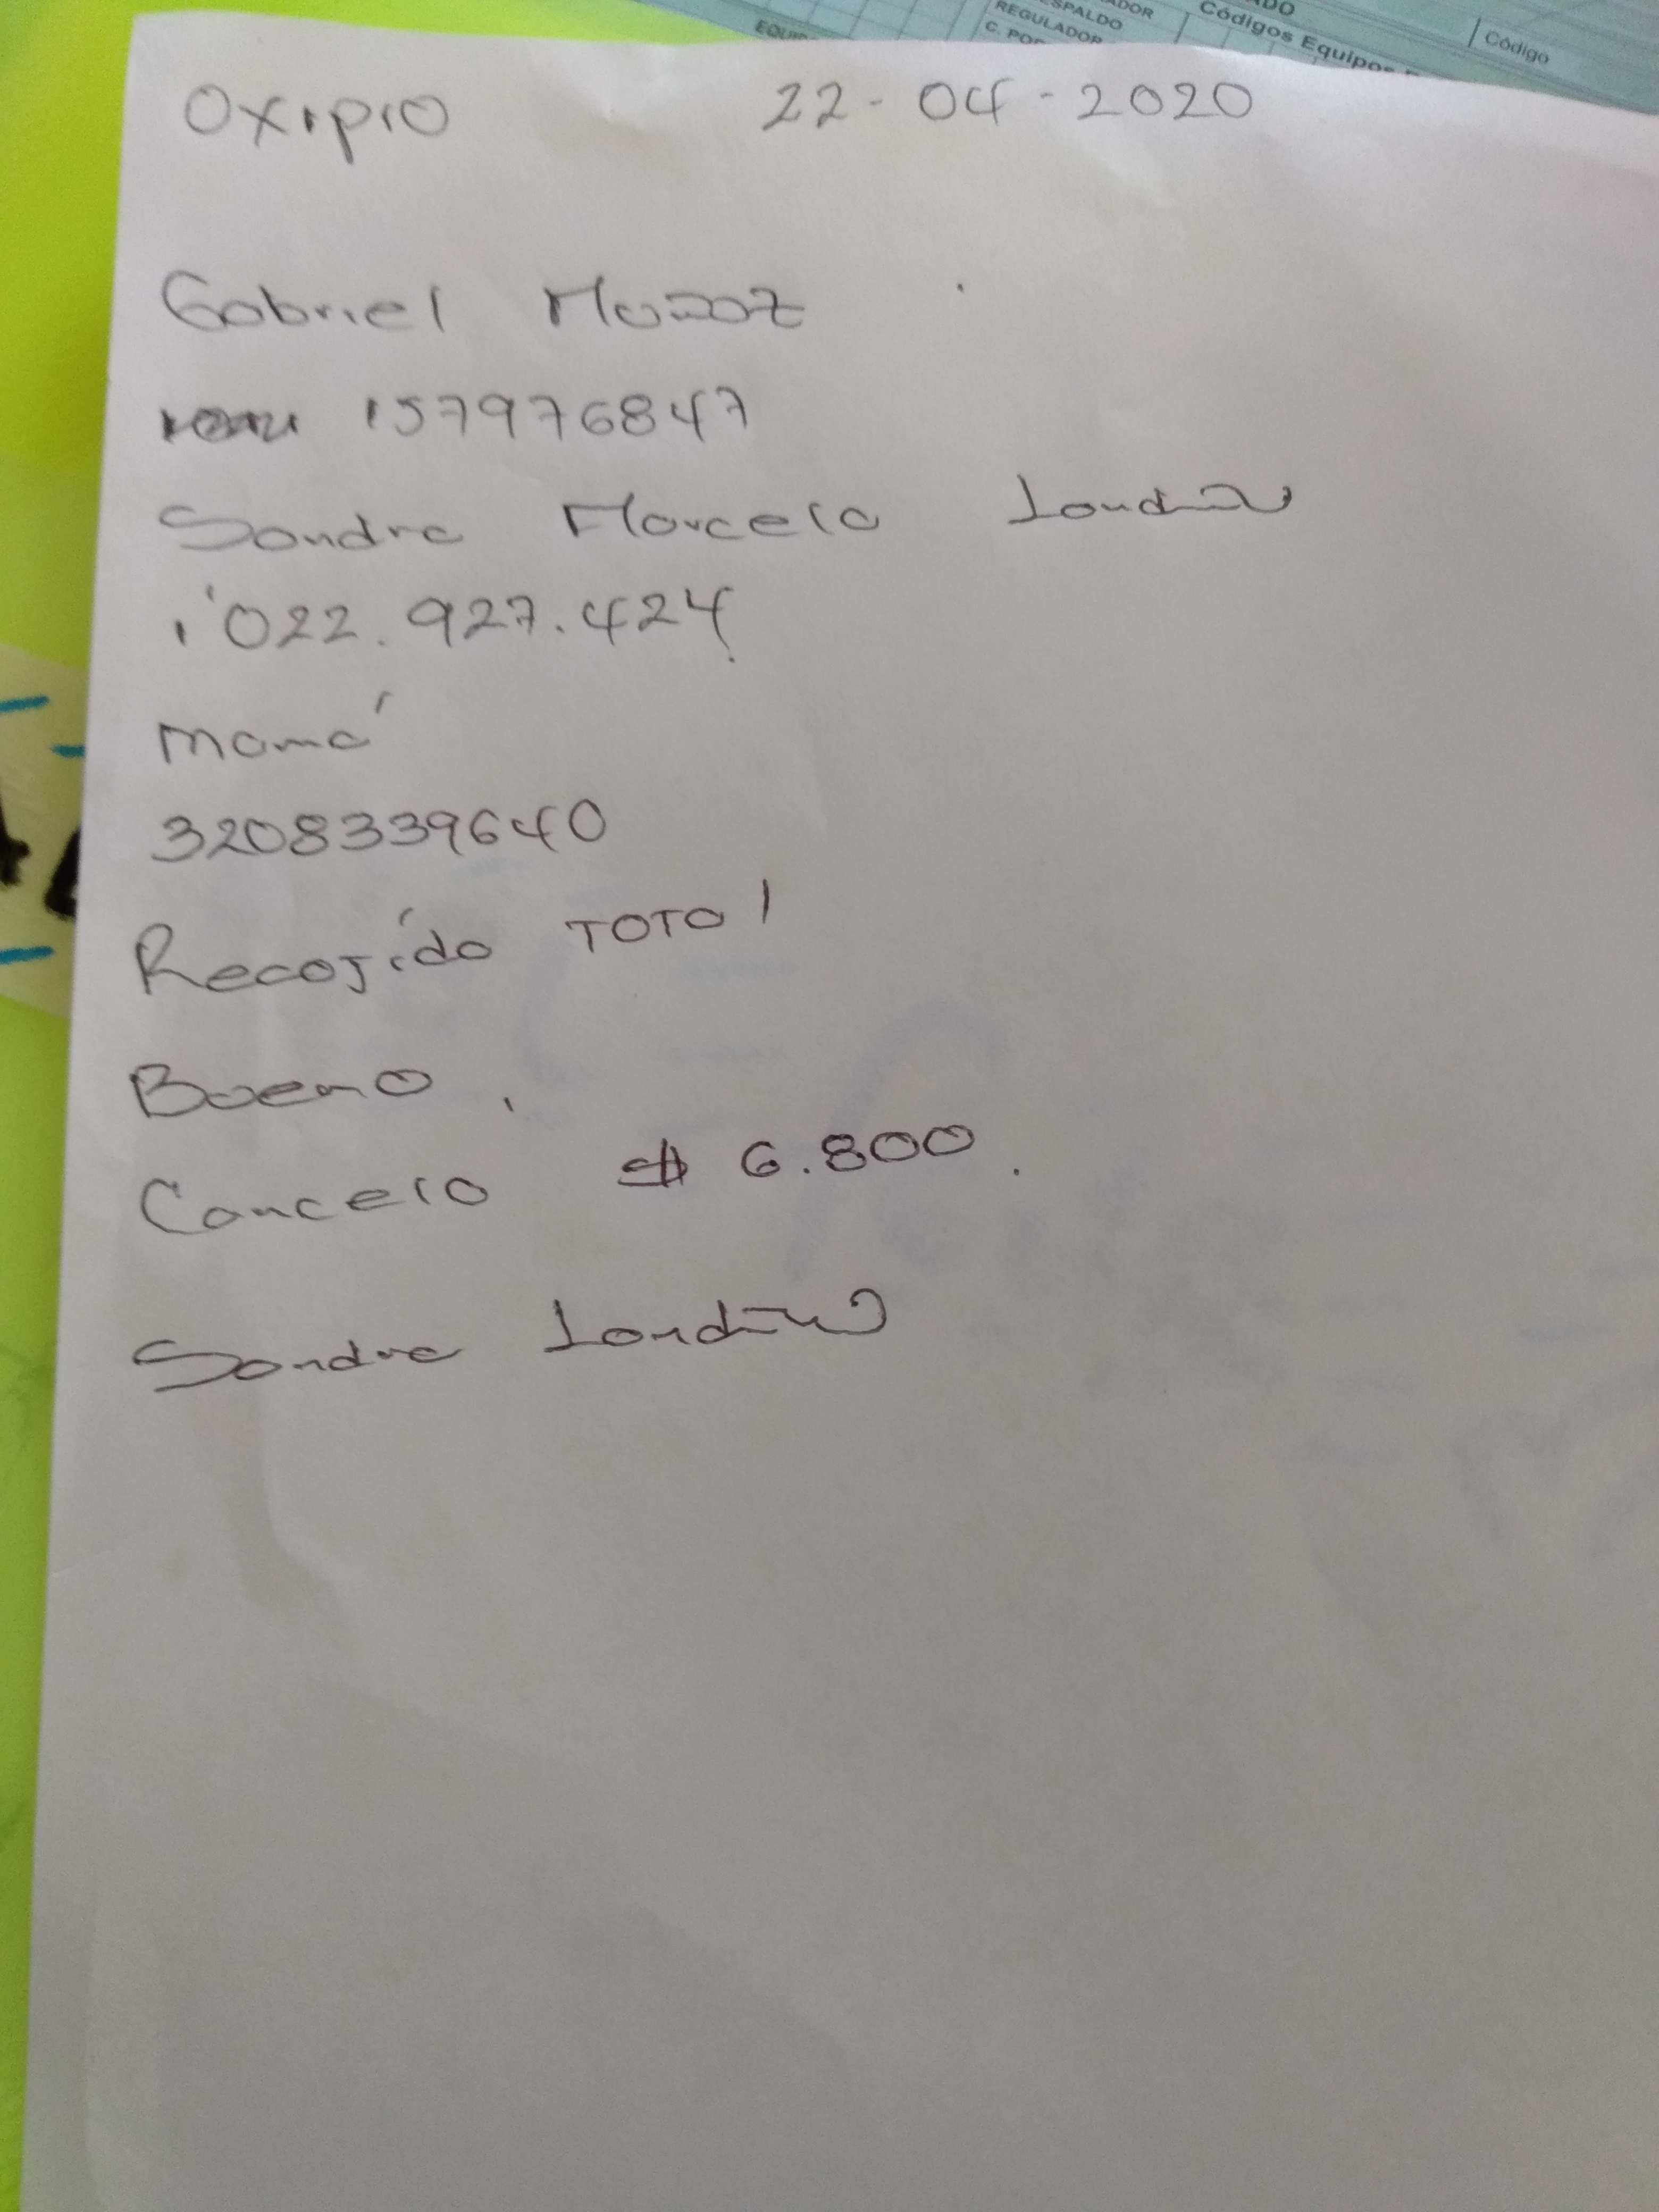 EQUIP
ESPALDO
REGULADOR
C. POR
Códigos Equipos
Código
Oxipro 22-04-2020
Gabriel Muñoz
157976847
Sandra Marcela Londoño
1'022.927.424
mamá
3208339640
Recojido TOTAL
Bueno.
Cancelo $ 6.800.
Sandra Londoño